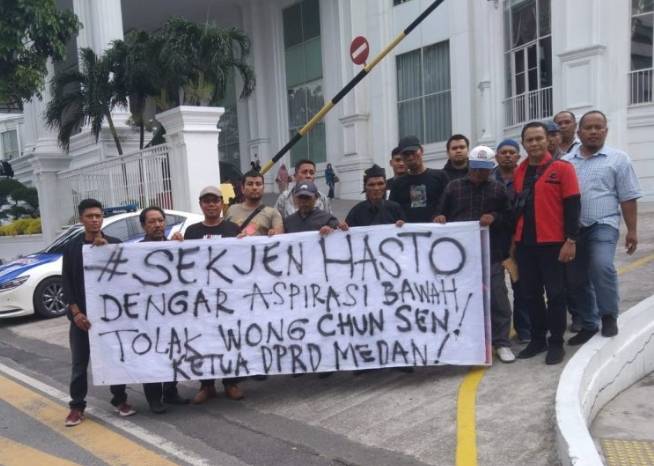 #SEKJEN HASTO
DENGAR ASPIRASI BAWAH!
TOLAK WONG CHUN SEN!
KETUA DPRD MEDAN!